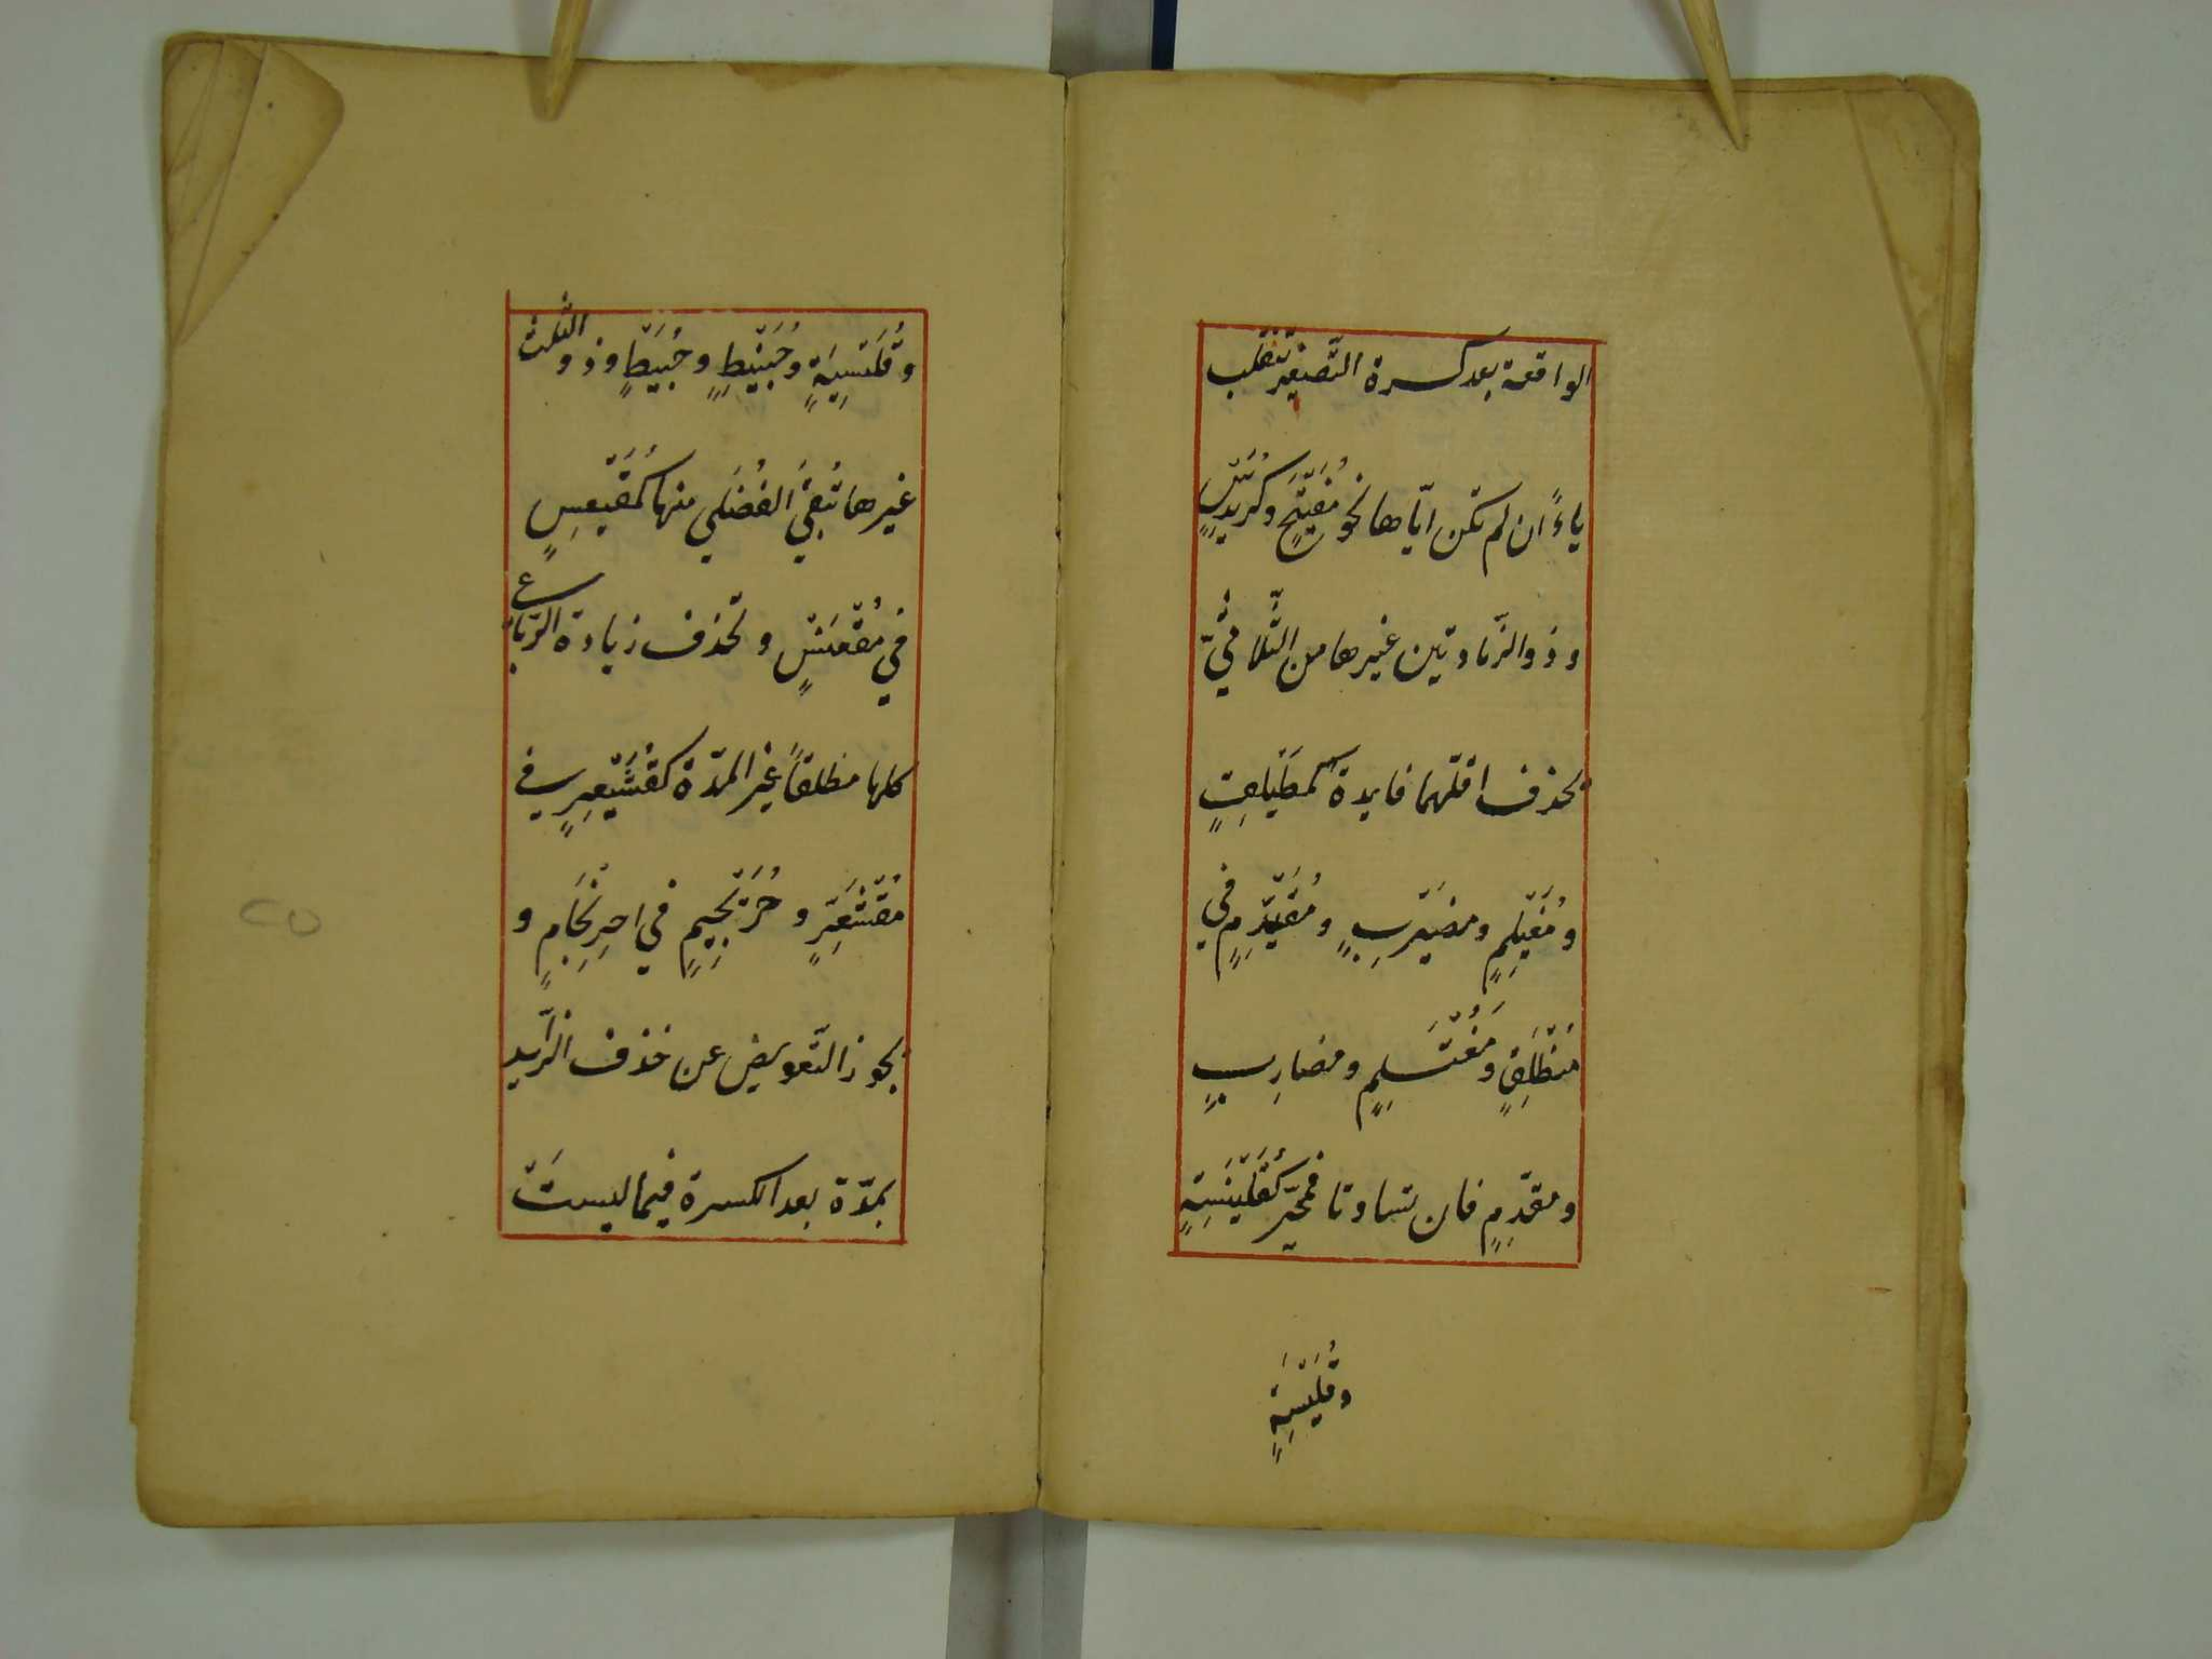 الواقعة بعد كسرة التّصغير تنقلب
ياءً ان لم تكن ايّاها نحو مُفَيْتِيحٍ وكُرَيْدِيسٍ
وذو الزّيادتين غيرها من الثّلاثيّ
تحذف اقلّهما فايدة كمُطَيْلِقٍ
ومُغَيْلِمٍ ومضَيْرِبٍ ومُقَيْدِمٍ في
منطَلِقٍ ومُغْتَلِمٍ ومضارِبٍ
ومقدِّمٍ فان تساوتا فمخيّر كَقُلَيْنِسَةٍ
وقُلَيْسِيَةٍ
وقُلَيْسِيَةٍ وحُبَيْنِطٍ وحُبَيْطٍ وذو الثّلث
غيرها تُبقي الفُضلى منها كمُقَيْعِسٍ
في مُقْعَنْسٍ وتحذف زيادة الرّباع
كلها مطلقاً غير المدّة كقُشَيْعِيرٍ في
مُقْشَعِرٍّ وحُرَيْجِيمٍ في احْرِنْجَامٍ و
يجوز التّعويض عن حذف الزّايد
بمدّة بعد الكسرة فيما ليسَتْ
٢٥